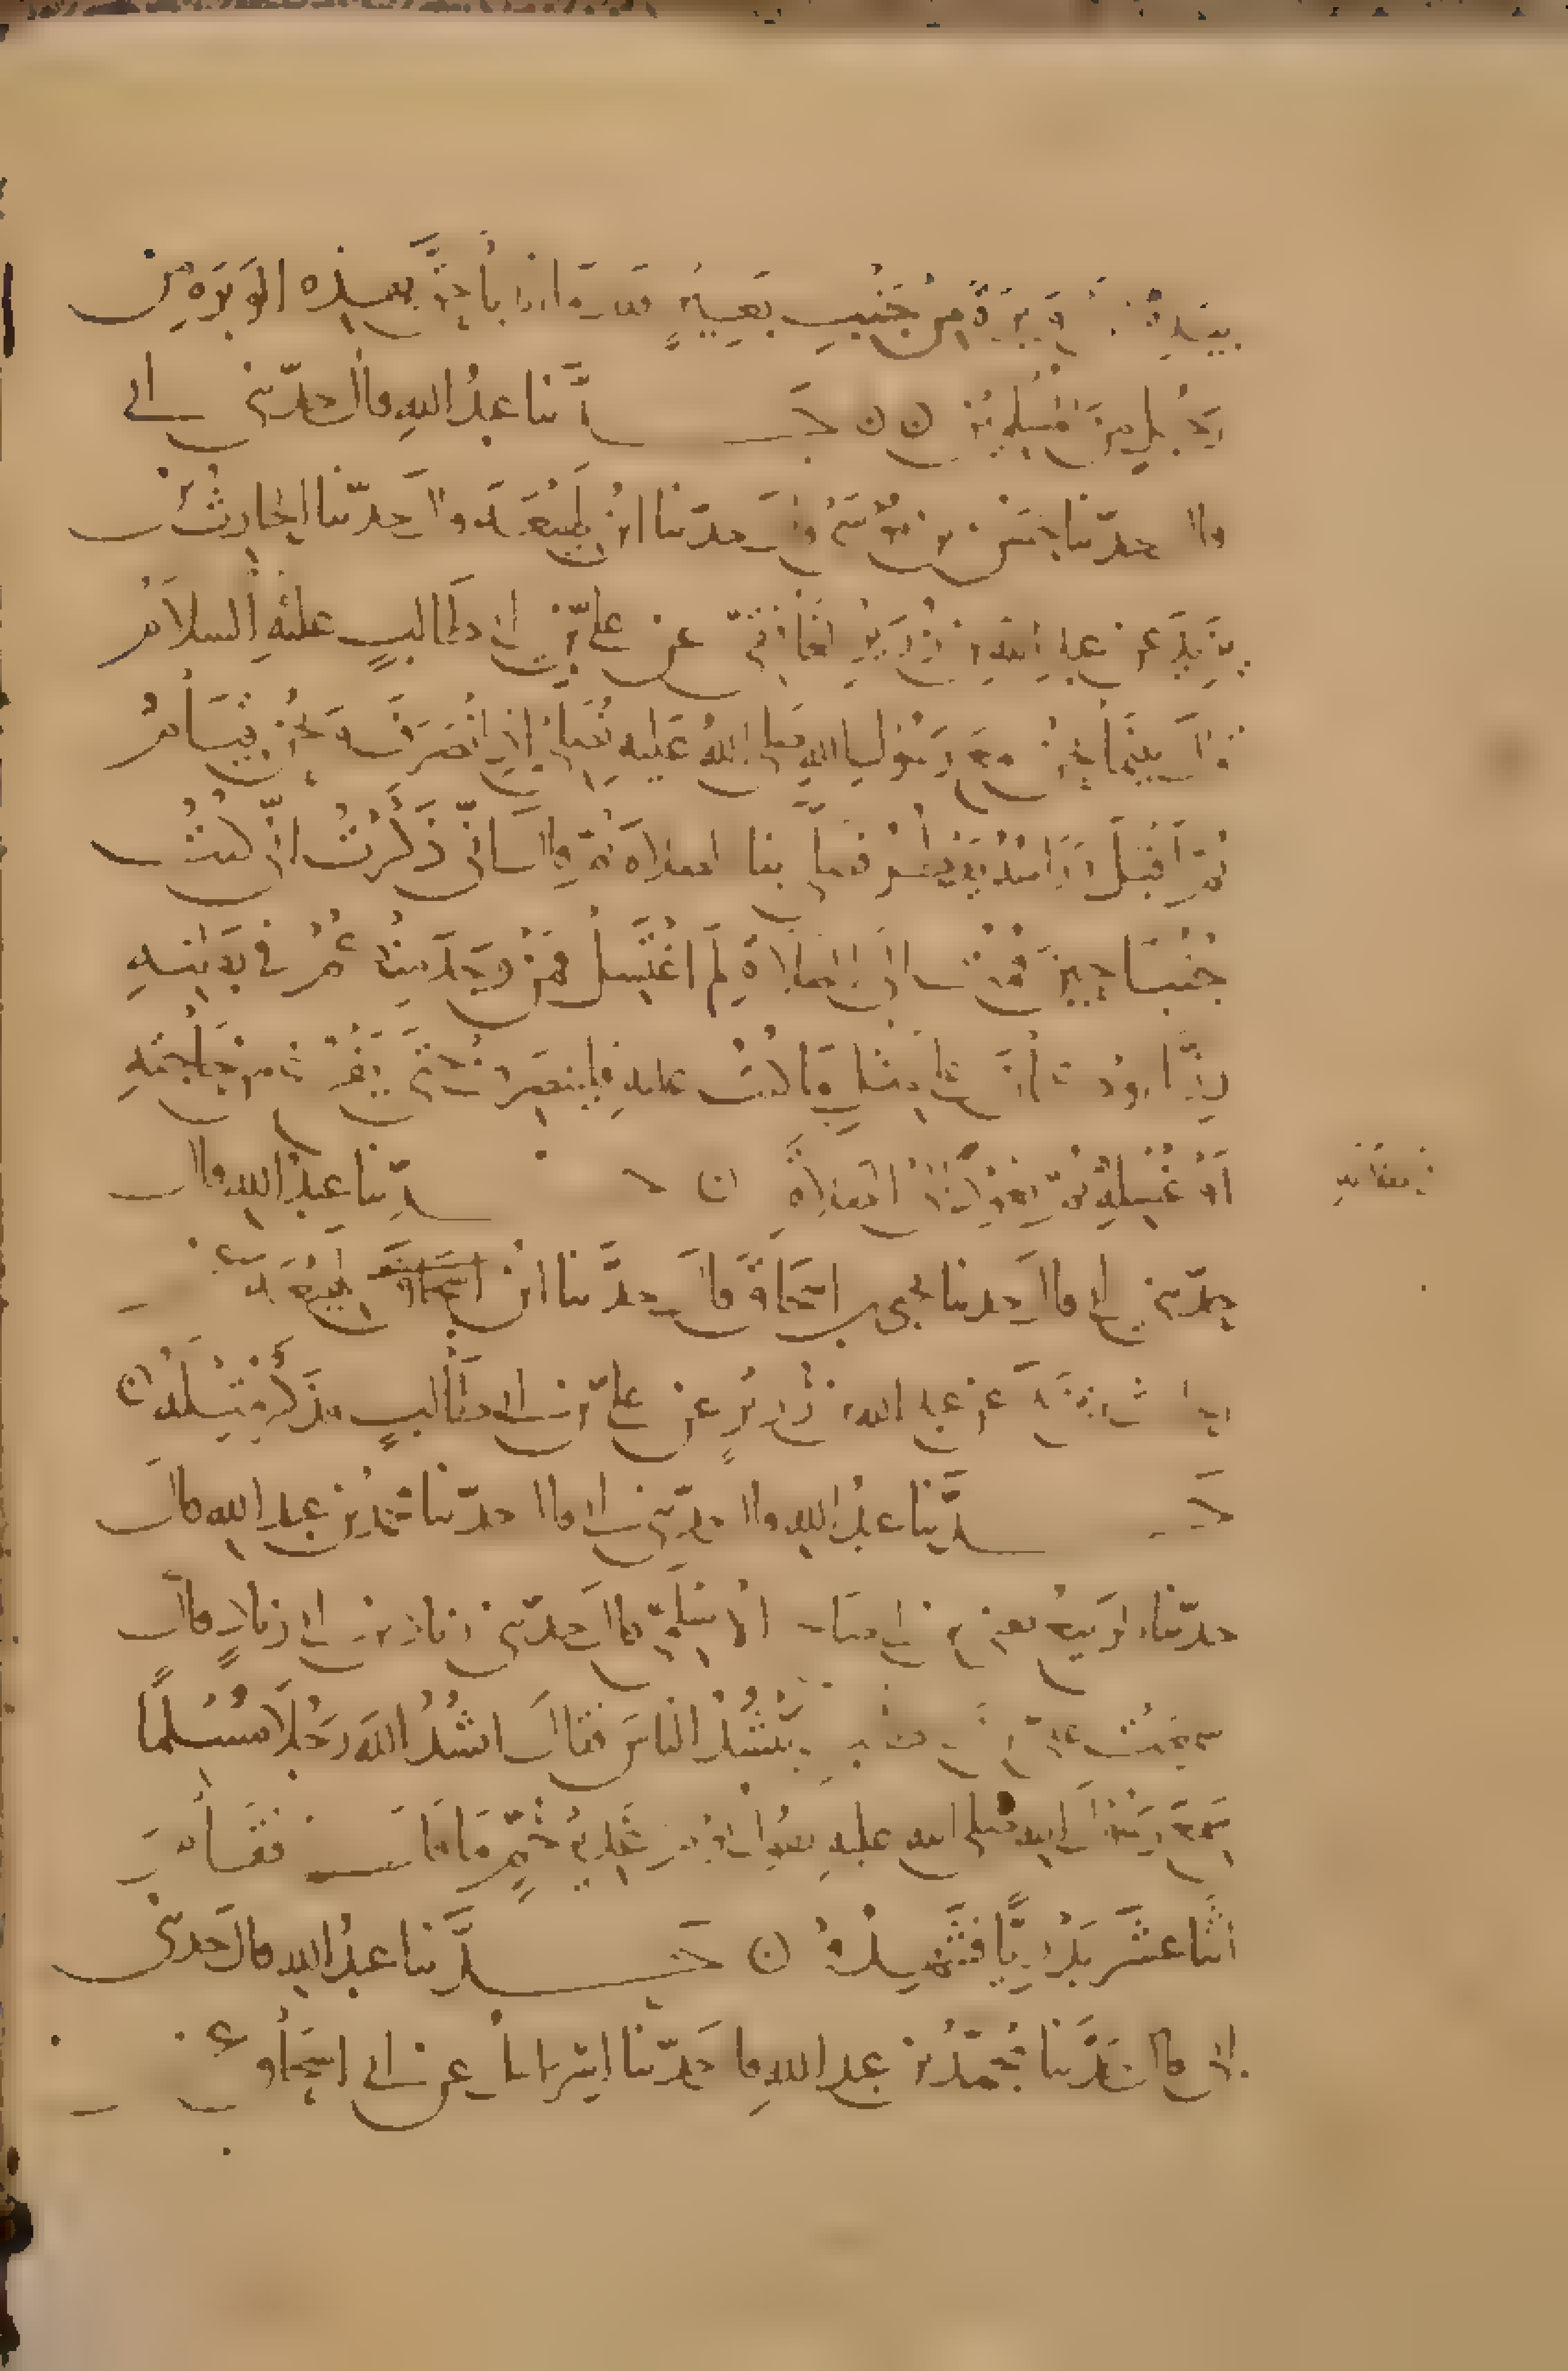 بيده وبرة من جنب بعيره فقال ما انا باحق بهذه الوبرة من
رجل من المسلمين ن ن حدثنا عبد الله قال حدثني ابي
قال حدثنا حسن بن موسى قال حدثنا ابن لهيعة قال حدثنا الحارث بن
يزيد عن عبد الله بن زرير الغافقي عن علي بن ابي طالب عليه السلام
قال بينما نحن مع رسول الله صلى الله عليه نصلي اذ انصرف ونحن قيام
ثم اقبل وراسه يقطر فصلى بنا الصلاة ثم قال اني ذكرت اني كنت
جنبا حين قمت الى الصلاة لم اغتسل فمن وجد منكم في بطنه
رزا او كان على مثل ما كنت عليه فلينصرف حتى يفرغ من حاجته
او غسله ثم يعود الى الصلاة ن حدثنا عبد الله قال
حدثني ابي قال حدثنا يحيى بن اسحاق قال حدثنا ابن اسحاق لهيعة عن
الحارث بن يزيد عن عبد الله بن زرير عن علي بن ابي طالب فذكر مثله ن
حدثنا عبد الله قال حدثني ابي قال حدثنا محمد بن عبد الله قال
حدثنا الربيع يعني بن ابي صالح الاسلمي قال حدثني زياد بن ابي زياد قال
سمعت علي بن ابي طالب ينشد الناس فقال انشد الله رجلا مسلما
سمع رسول الله صلى الله عليه يقول يوم غدير خم ما قال فقام
اثنا عشر بدريا فشهدوا ن حدثنا عبد الله قال حدثني
ابي قال حدثنا محمد بن عبد الله قال حدثنا اسرائيل عن ابي اسحاق عن